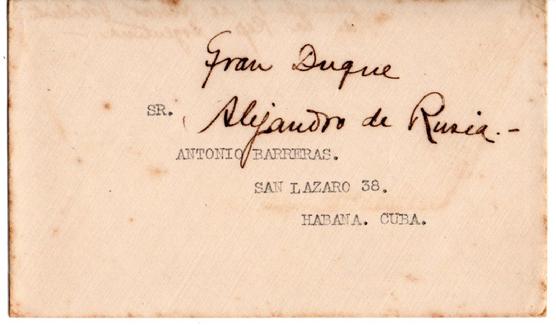 Gran Duque
SR.
Alejandro de Rusia.-
ANTONIO BARRERAS.
SAN LAZARO 38.
HABANA. CUBA.